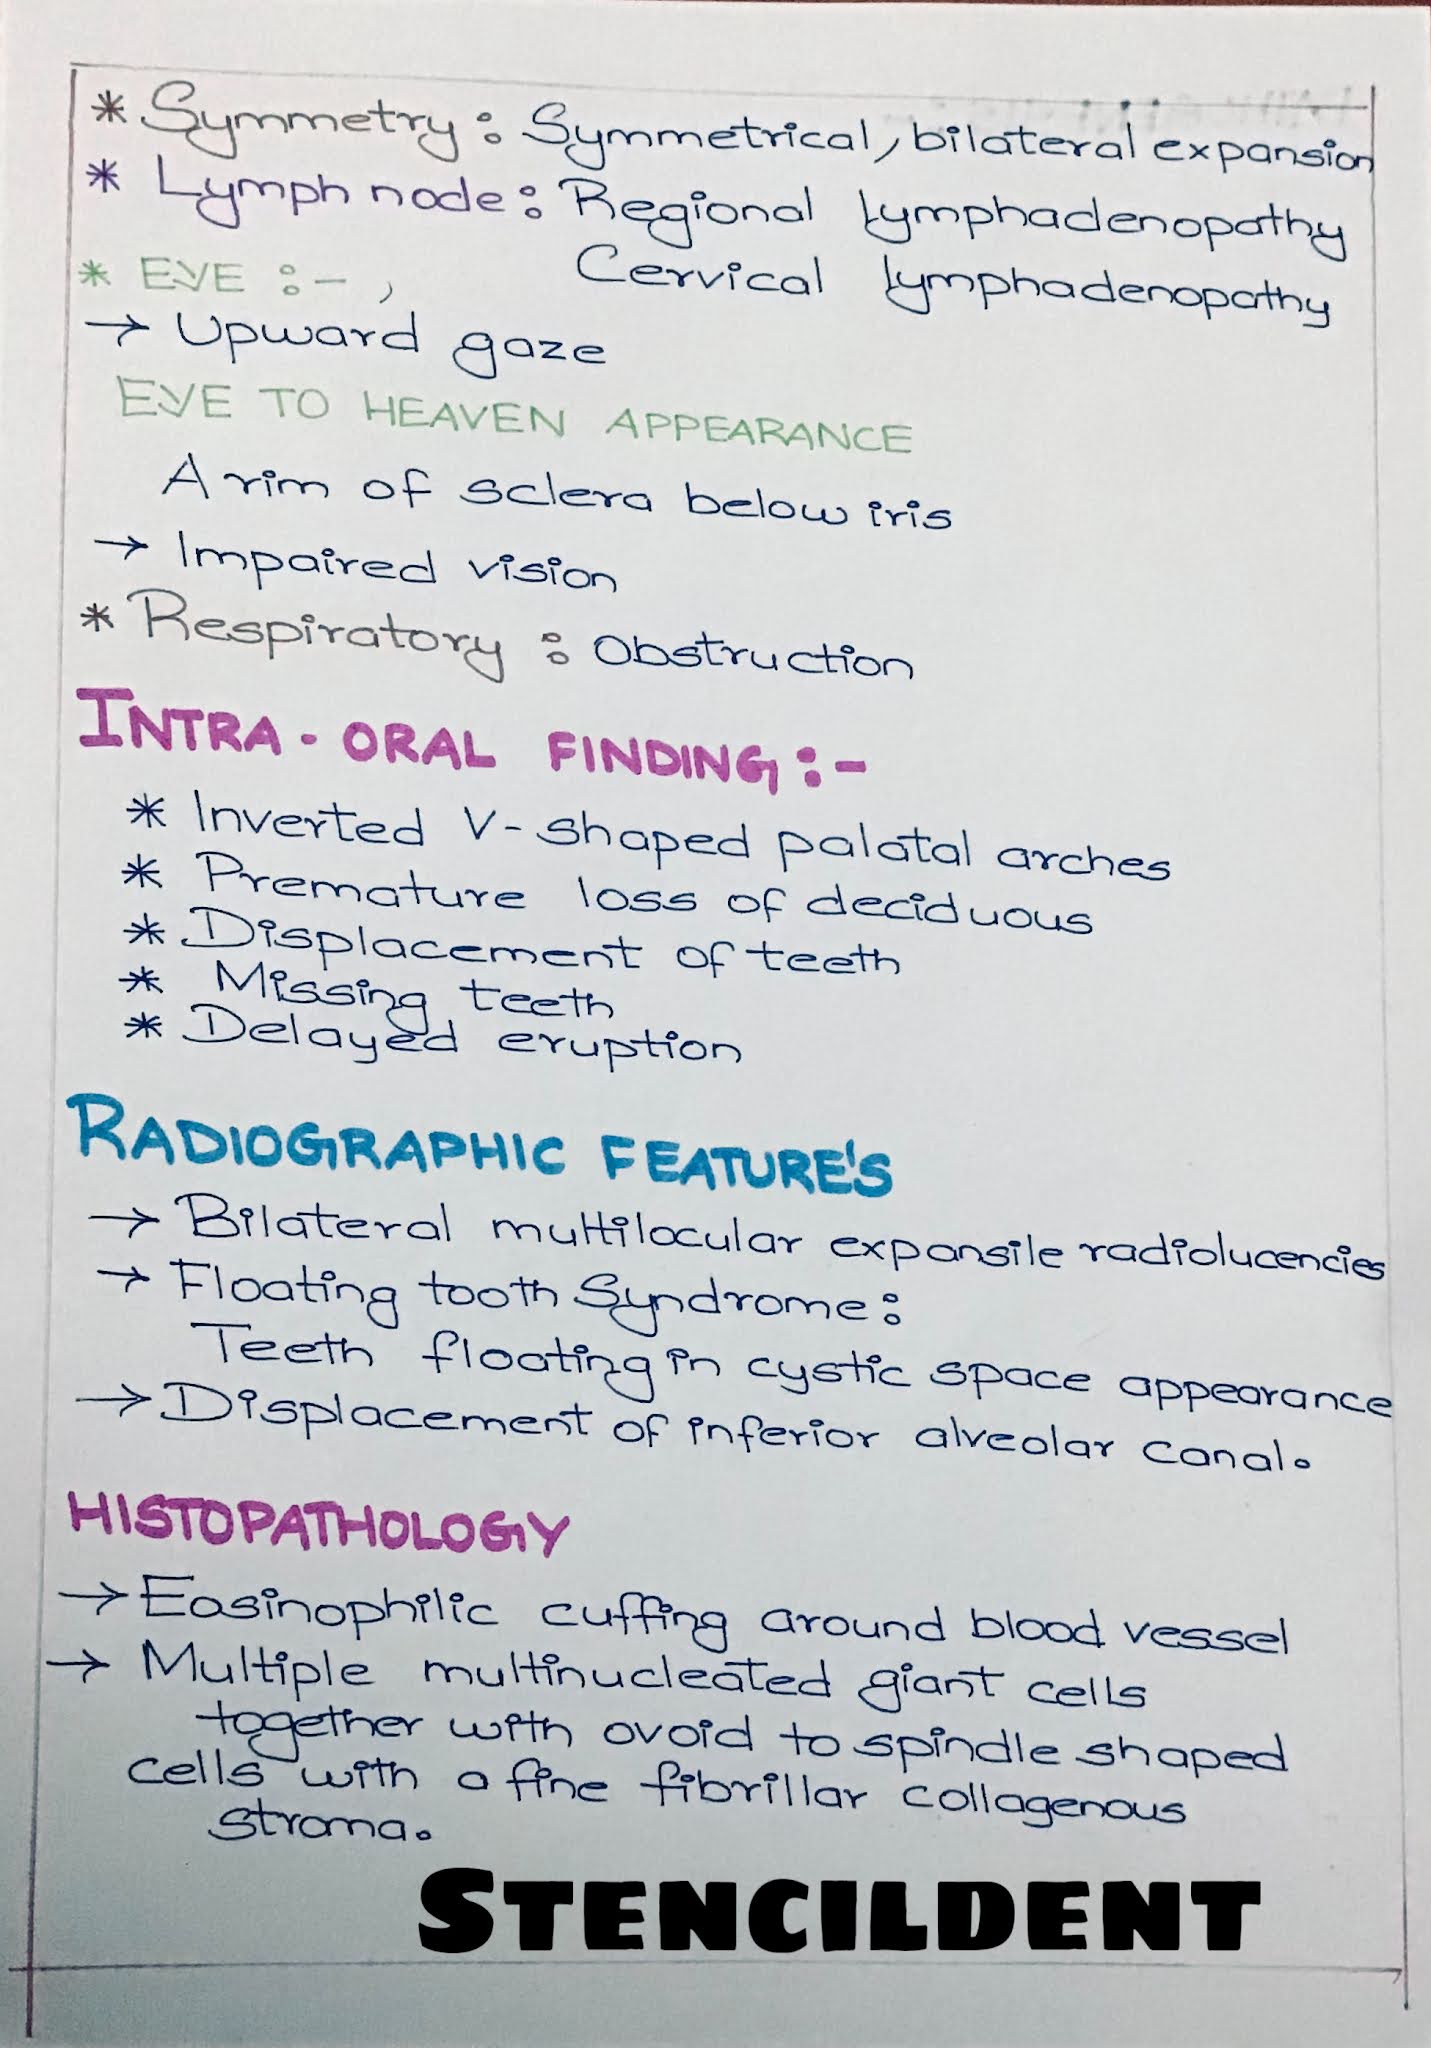 * Symmetry : Symmetrical, bilateral expansion
* Lymph node : Regional lymphadenopathy
Cervical lymphadenopathy
* EYE :- ,
→ Upward gaze
EYE TO HEAVEN APPEARANCE
A rim of sclera below iris
→ Impaired vision
* Respiratory : Obstruction
INTRA - ORAL FINDING :-
* Inverted V-shaped palatal arches
* Premature loss of deciduous
* Displacement of teeth
* Missing teeth
* Delayed eruption
RADIOGRAPHIC FEATURE'S
→ Bilateral multilocular expansile radiolucencies
→ Floating tooth Syndrome :
Teeth floating in cystic space appearance
→ Displacement of inferior alveolar canal.
HISTOPATHOLOGY
→ Eosinophilic cuffing around blood vessel
→ Multiple multinucleated giant cells
together with ovoid to spindle shaped
cells with a fine fibrillar collagenous
stroma.
STENCILDENT